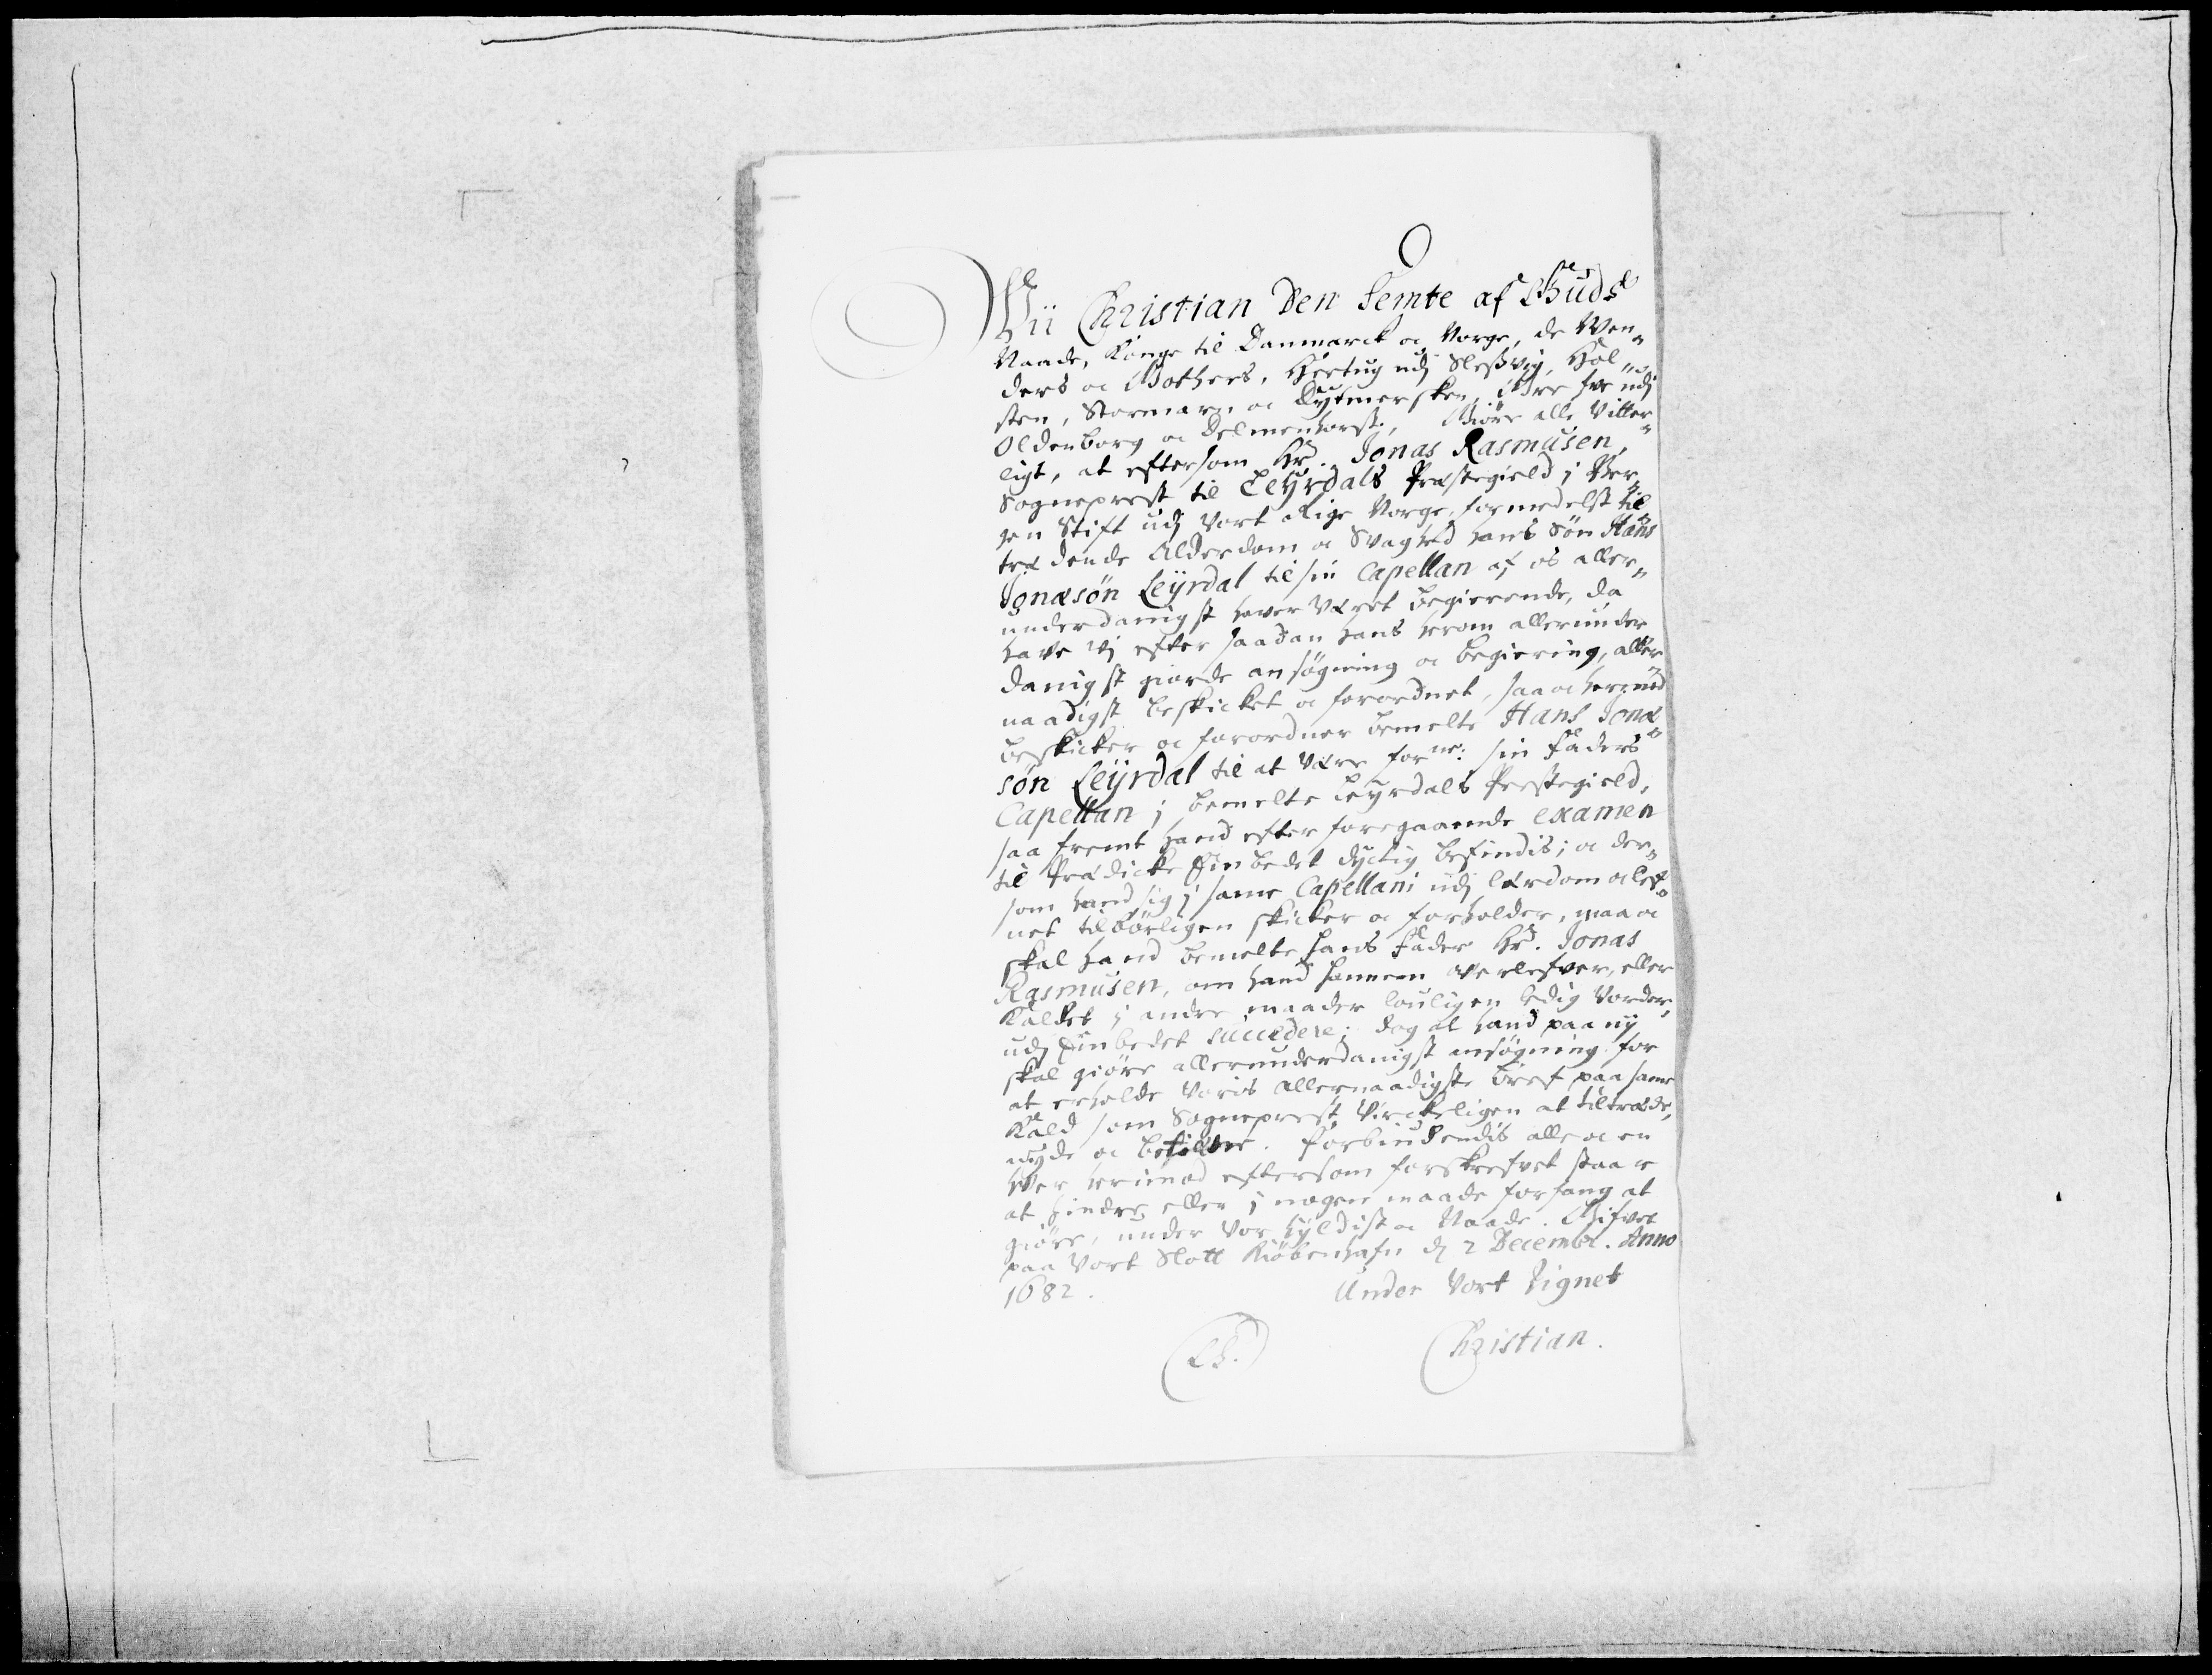 Vii Christian Den Femte af Guds
Naade, Konge til Danmarck oc Norge, de Wen„
ders oc Gothers, Hertug udj Sleßvig, Hol„
sten, Stormarn oc Dytmersken, Grefve udj
Oldenborg oc Delmenhorst, Giöre alle Vitter„
ligt, at eftersom Hr. Jonas Rasmusen,
Sogneprest til Leyrdals Præstegield j Ber„
gen Stift udj Vort Rige Norge, formedelst til„
trædende Alderdom oc Svaghed hans Søn Hans
Jonæsøn Leÿrdal til sin Capellan af os aller„
underdanigst haver Været begierende, da
have Vj efter saadan hans herom allerunder„
danigst giorde ansøgning oc begiering, aller„
naadigst beskicket oc forordnet, saa oc hermed
beskicker oc forordner bemelte Hans Jonæ„
søn Leÿrdal til at Være forne: sin Faders
Capellan j bemelte Leyrdals Prestegield,
saa fremt hand efter foregaaende examen
til Prædicke Embedet dyctig befindis; oc der„
som hand sig j same Capellani udj lærdom oc lef„
net tilbørligen skicker oc forholder, maa oc
skal hand bemelte hans Fader Hr. Jonas
Rasmusen, om hand hannem overlefver, eller
Kaldet j andre maader louligen ledig Vorder,
udj Embedet succedere; dog at hand paa ny
skal giöre allerunderdanigst ansøgning for
at erholde Voris allernaadigste bref paa same
Kald som Sogneprest Virckeligen at tiltræde,
nyde oc . Forbiudendis alle oc en
hver herimod eftersom forskrefvet staar
at hindre eller j nogen maade forfang at
giöre, under Vor hyldist oc Naade. Gifvet
paa Vort Slott Kiøbenhafn dj 2 Decembr. Anno
1682. Under Vort Signet
(LS.) Christian.